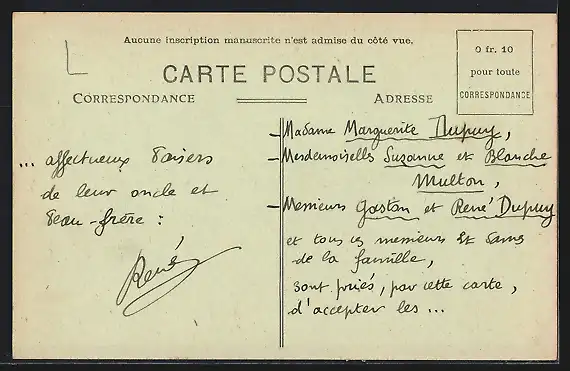 Aucune inscription manuscrite n'est admise du côté vue.
CARTE POSTALE
0 fr. 10
pour toute
CORRESPONDANCE
CORRESPONDANCE
ADRESSE
... affectueux baisers
de leur oncle et
beau-frère :
René
- Madame Marguerite Dupuy,
- Mesdemoiselles Suzanne et Blanche
Multon,
- Messieurs Gaston et René Dupuy
et tous ces messieurs et dames
de la famille,
sont priés, par cette carte,
d'accepter les ...